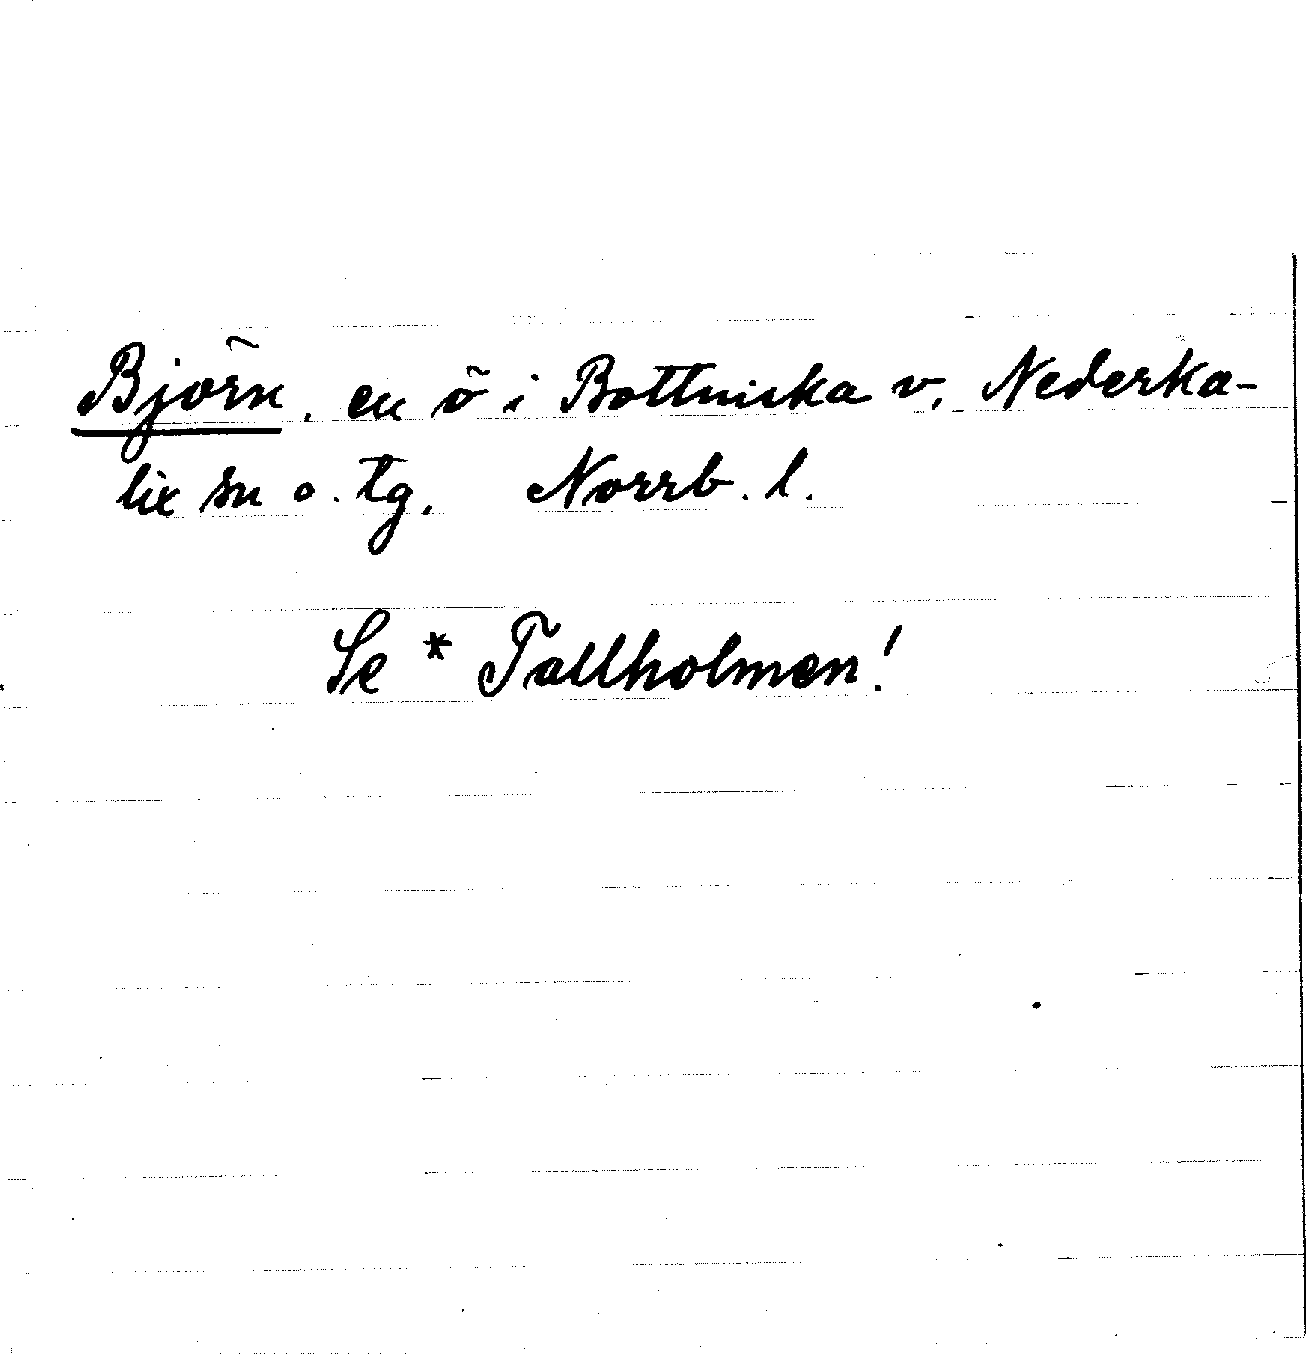 Björn, en ö i Bottniska v. Nederka-
lix sn o. tg. Norrb. l.
Se * Tallholmen!